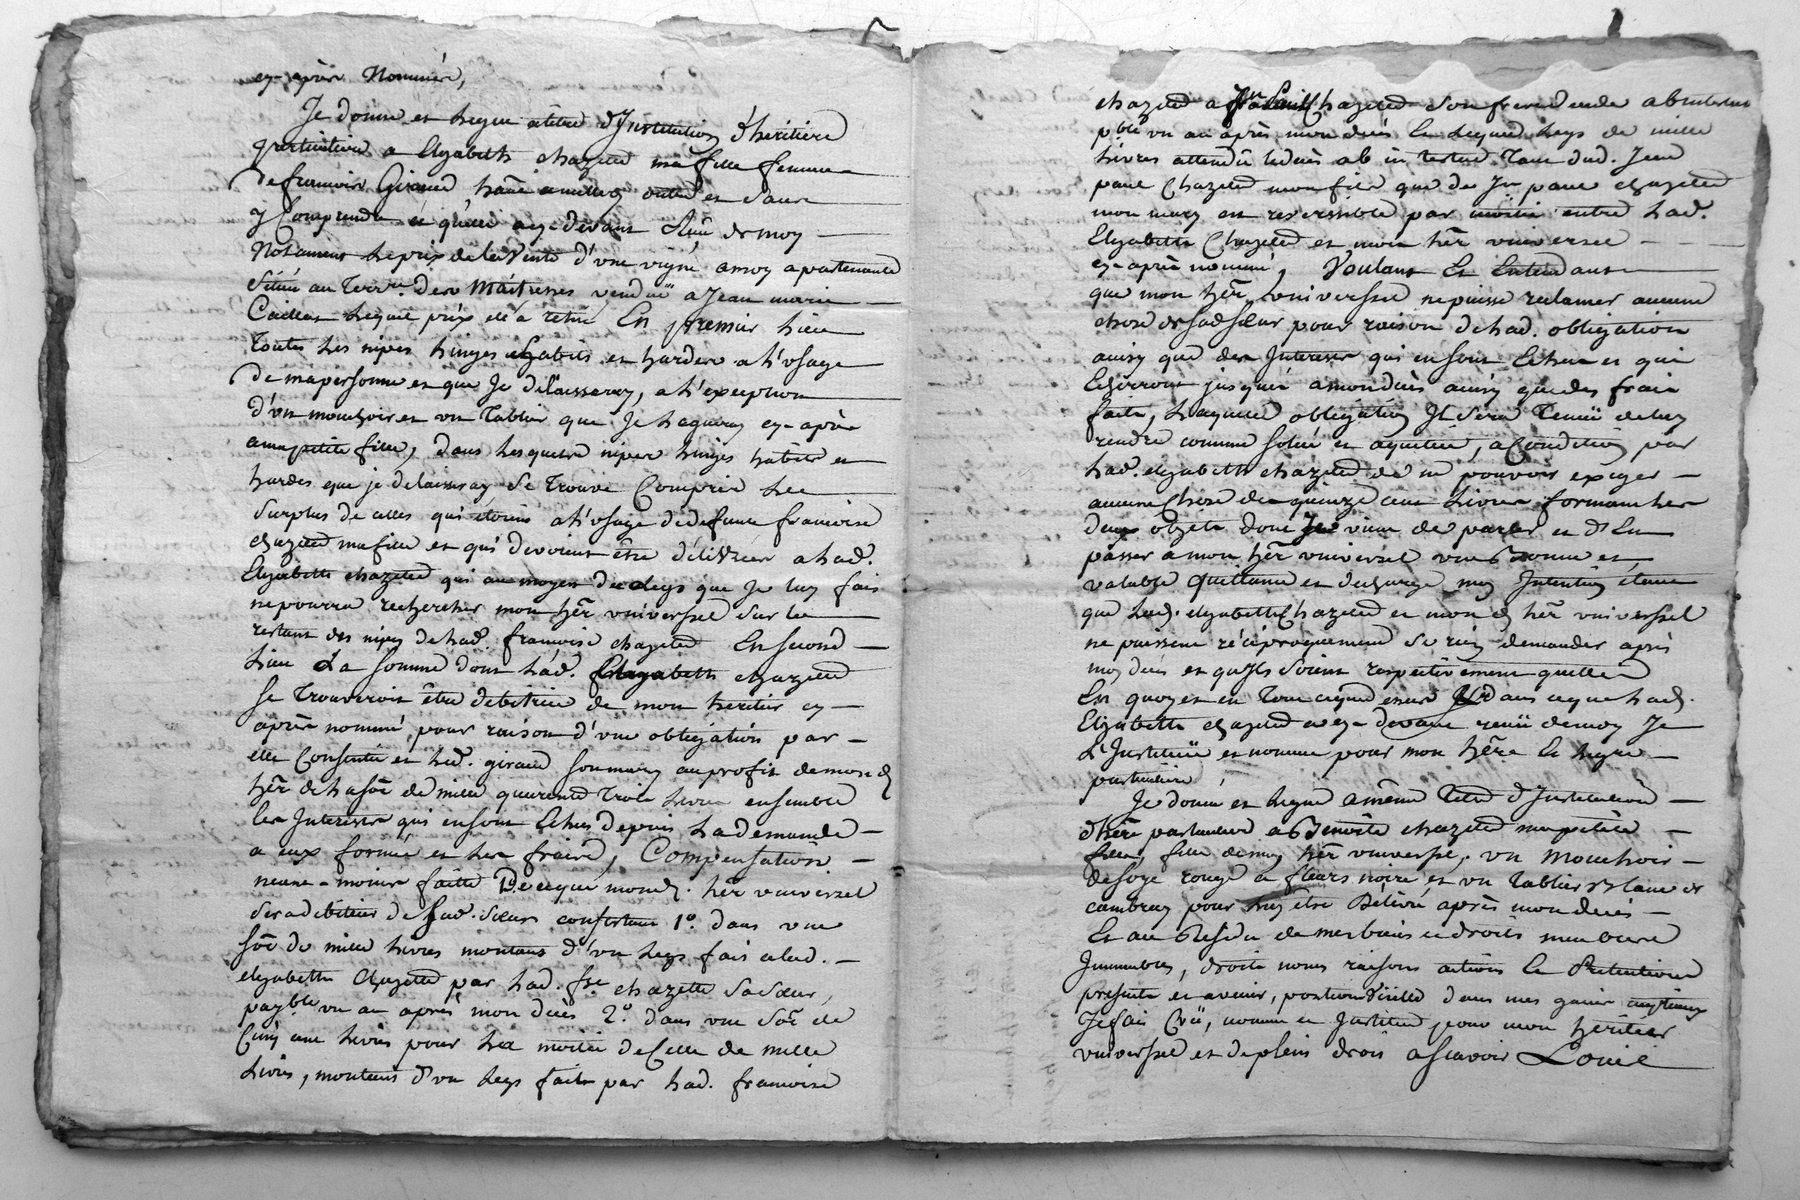 cy-après Nommée,
Je donne et legue a titre d'Institution d'héritière
particulière a Elizabeth chazette ma fille femme
de francois Giraud outre et sans
y Comprendre ce qu'elle a cy-devant Reçu de moy
Notament le prix de la Vente d'une vigne a moy apartenante
située au Terre. des Maitresses vendue a Jean marie
lequel prix elle a retiré En premier lieu
toutes les nipes linges habits et hardes a l'usage
de ma personne et que Je delaisseray, a l'exception
d'un mouchoir et un Tablier que Je legueray cy-après
a ma petite fille, dans lesquels nipes linges habits et
hardes que je delaisseray se trouve Compris le
surplus de celles qui étoient a l'usage de defunte francoise
chazette ma fille et qui devoient être délivrées a lad.
Elizabeth chazette qui au moyen du legs que Je luy fais
ne pourra rechercher mon her. universel sur le
restant des nipes de lad. francoise chazette En second
lieu La somme dont lad. Elizabeth chazette
se trouveroit être debitrice de mon heritier cy-
après nommé, pour raison d'une obligation par
elle Consentie et led. giraud son mary au profit de mond.
her. de la soe. de mille quarente trois livres ensemble
les Interets qui en sont Echus depuis la demande
a eux formée et les fraix, Compensation
neanmoins faitte De ce que mond. her. universel
sera debiteur de sad. sœur consistant 1°. dans une
soe. de mille livres montant d'un legs fait alad.
elizabeth chazette par lad. fse. chazette sa sœur,
payble. un an après mon deces 2°. dans une soe. de
Cinq cent livres pour la moitié de Celle de mille
livres, montant d'un legs fait par lad. francoise
chazette a Jn. Paul Chazette son frere decedé ab intestat
pble. un an après mon deces le sequel legs de mille
livres attendu le deces ab intestat Tant dud. Jean
paul Chazette mon fils que de Jn. paul chazette
mon mary est reversible par moitié entre lad.
Elizabeth Chazette et mon her. universel
cy-après nommé, Voulant Et Entendant
que mon her. universel ne puisse reclamer aucune
chose de sad. sœur pour raison de lad. obligation
ainsy que des Interets qui en sont Echus et qui
Echerront jusqu'a mon deces ainsy que des fraix
faits, laquelle obligation Il sera Tenu de luy
rendre comme solue et aquittée, a Condition par
lad. elizabeth chazette de ne pouvoir exiger
aucune Chose des quinze cent livres formant les
deux objets dont Je viens de parler et d'En
passer a mon her. universel une bonne et
valable quittance et decharge, mon Intention étant
que lad. elizabeth Chazette et mond. her. universel
ne puissent réciproquement se rien demander après
mon deces et qu'ils soient respectivement quittes
En quoy et en tout ce que dessus et dans ce que lad.
Elizabeth chazette a cy-devant reçu de moy Je
L'Institue et nomme pour mon here. la legre.
particulière
Je donne et legue a même Titre d'Institution
d'here. particuliere a Benoite chazette ma petite
fille, fille de mon her. universel, un Mouchoir
de soye rouge a fleurs noire et un Tablier blanc de
cambray pour luy etre Délivré après mon deces
Et au Residu de mes biens et droits meubles
Immeubles, droits noms raisons actions et Pretentions
presents et avenir, portion d'iceux dans mes gains
Je fais Créé, nomme et Institue pour mon héritier
universel et de plein droit a scavoir Louis